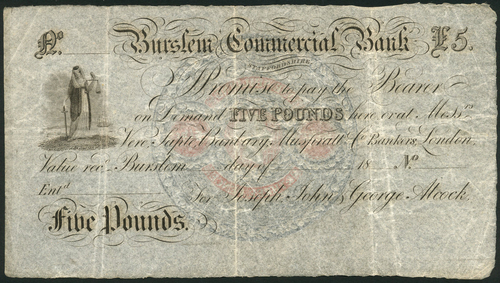 No. Burslem Commercial Bank £5.
STAFFORDSHIRE
I Promise to pay the Bearer
on Demand FIVE POUNDS here or at Messrs
Vere, Sapte, Banbury, Muspratt & Co. Bankers, London.
Value recd. Burslem day of 18 No
Entd.
For Joseph, John & George Alcock.
Five Pounds.